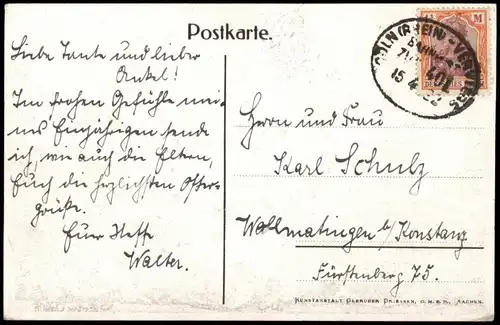 Postkarte.
Liebe Tante und lieber
Onkel!
Im frohen Gefühle mei-
nes Einjährigen sende
ich, wie auch die Eltern,
Euch die herzlichsten Oster-
grüße.
Euer Neffe
Walter.
M
CÖLN (RHEIN) - VERVIERS
BAHNPOST
ZUG 401
15 4 22
Herrn und Frau
Karl Schulz
Wollmatingen b/Konstanz
Fürstenberg 75.
KUNSTANSTALT GEBRÜDER DRIESSEN, G.M.B.H., AACHEN.